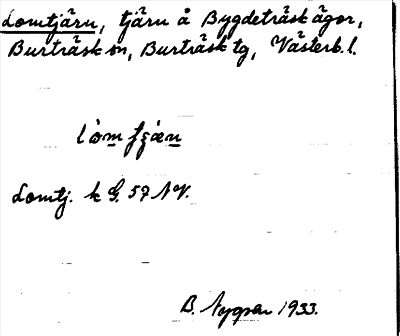 Lomtjärn, tjärn å Bygdeträsk ägor,
Burträsk sn, Burträsk tg, Västerb. l.
Lomtj. k G. 57 NV.
B. Nygren 1933.